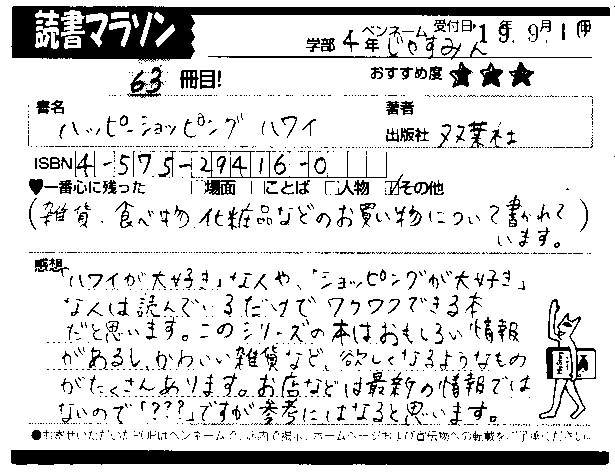 読書マラソン
学部 4年 ペンネーム じゃすみん 受付日 19年9月1日
63 冊目! おすすめ度 ★★★
書名 著者
ハッピーショッピング ハワイ 出版社 双葉社
ISBN 4-575-29416-0
♥一番心に残った □場面 □ことば □人物 ☑その他
(雑貨、食べ物、化粧品などのお買い物について書かれて
います。)
感想
「ハワイが大好き」な人や、「ショッピングが大好き」
な人は読んでいるだけでワクワクできる本
だと思います。このシリーズの本はおもしろい情報
があるし、かわいい雑貨など、欲しくなるようなもの
がたくさんあります。お店などは最新の情報では
ないので「???」ですが参考にはなると思います。
●お寄せいただいたPOPはペンネームで、店内で掲示、ホームページおよび宣伝物への転載をご了承ください。